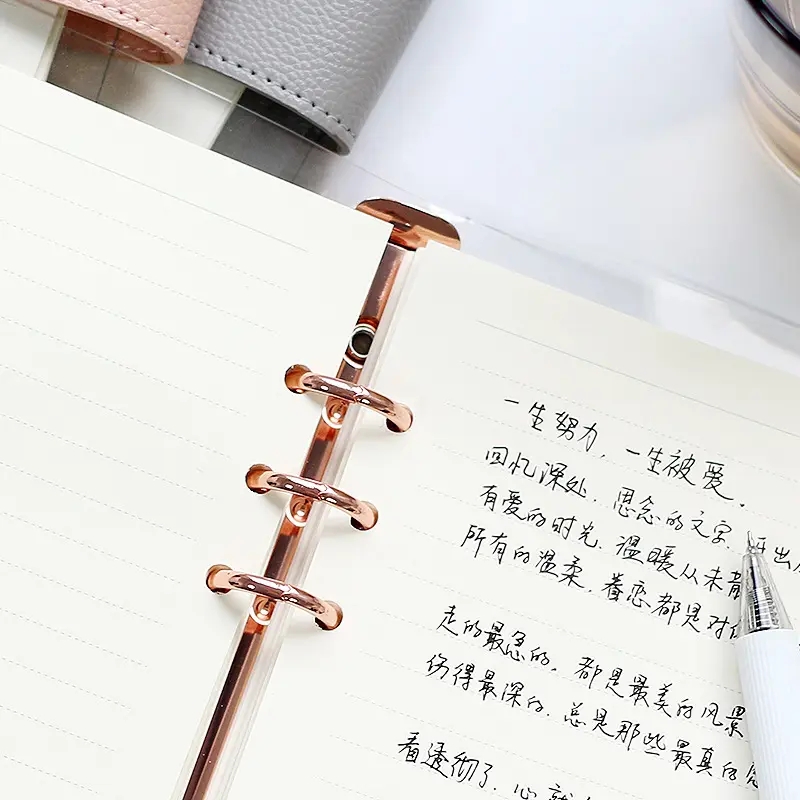 一生努力，一生被爱．
回忆深处．思念的文字．开出
有爱的时光．温暖从未
所有的温柔．眷恋都是对
走的最急的，都是最美的风景
伤得最深的．总是那些最真的
看透彻了．心就